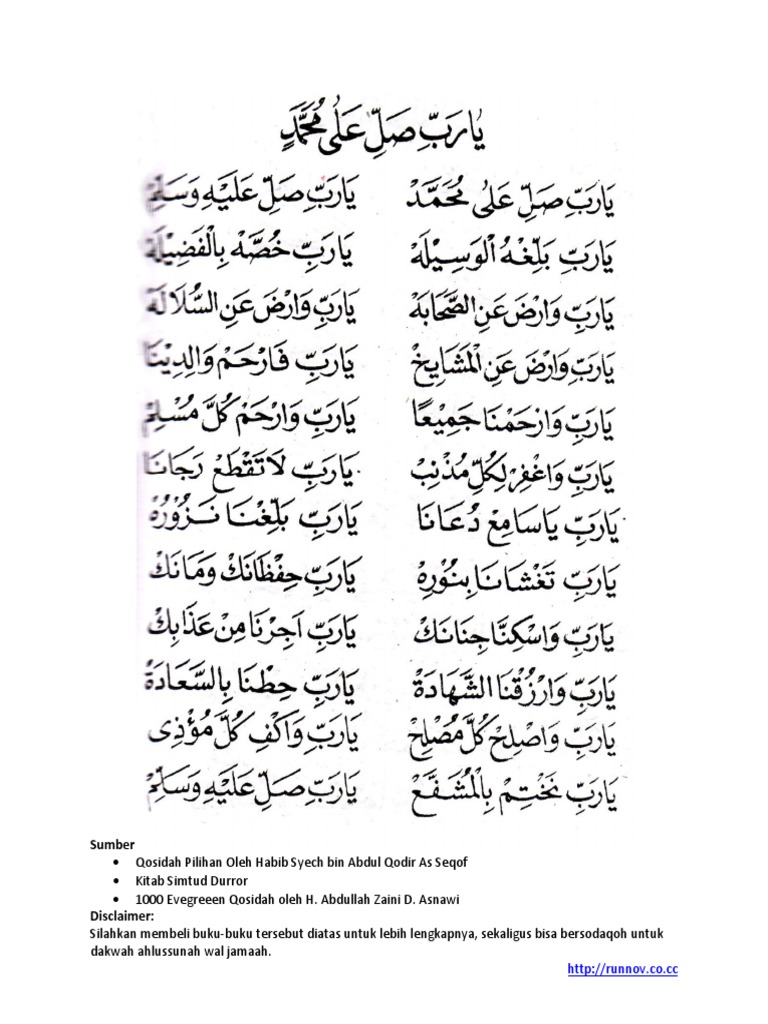 يٰارَبِّ صَلِّ عَلٰى مُحَمَّدٍ
يَارَبِّ صَلِّ عَلٰى مُحَمَّدْ يَارَبِّ صَلِّ عَلَيْهِ وَسَلِّمْ
يَارَبِّ بَلِّغْهُ الْوَسِيْلَهْ يَارَبِّ خُصَّهْ بِالْفَضِيْلَهْ
يَارَبِّ وَارْضَ عَنِ الصَّحَابَهْ يَارَبِّ وَارْضَ عَنِ السُّلَالَهْ
يَارَبِّ وَارْضَ عَنِ الْمَشَايِخْ يَارَبِّ فَارْحَمْ وَالِدِيْنَا
يَارَبِّ وَارْحَمْنَا جَمِيْعًا يَارَبِّ وَارْحَمْ كُلَّ مُسْلِمْ
يَارَبِّ وَاغْفِرْ لِكُلِّ مُذْنِبْ يَارَبِّ لَاتَقْطَعْ رَجَانَا
يَارَبِّ يَاسَامِعْ دُعَانَا يَارَبِّ بَلِّغْنَا نَزُوْرُهْ
يَارَبِّ تَغْشَانَا بِنُوْرِهْ يَارَبِّ حِفْظَانَكْ وَمَانَكْ
يَارَبِّ وَاسْكِنَّا جِنَانَكْ يَارَبِّ اَجِرْنَا مِنْ عَذَابِكْ
يَارَبِّ وَارْزُقْنَا الشَّهَادَةْ يَارَبِّ حِطْنَا بِالسَّعَادَةْ
يَارَبِّ وَاصْلِحْ كُلَّ مُصْلِحْ يَارَبِّ وَاكْفِ كُلَّ مُؤْذِى
يَارَبِّ نَخْتِمْ بِالْمُشَفَّعْ يَارَبِّ صَلِّ عَلَيْهِ وَسَلِّمْ
Sumber
• Qosidah Pilihan Oleh Habib Syech bin Abdul Qodir As Seqof
• Kitab Simtud Durror
• 1000 Evegreeen Qosidah oleh H. Abdullah Zaini D. Asnawi
Disclaimer:
Silahkan membeli buku-buku tersebut diatas untuk lebih lengkapnya, sekaligus bisa bersodaqoh untuk
dakwah ahlussunah wal jamaah.
http://runnov.co.cc